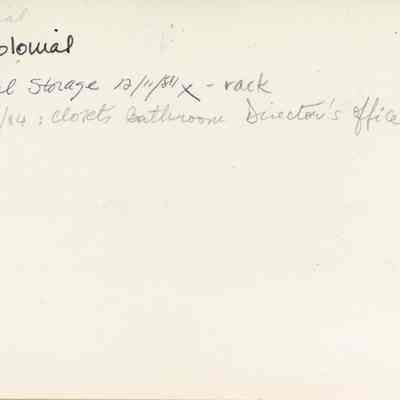 olonial
l Storage 12/11/84 x - rack
/84 : closets bathroom Director's office